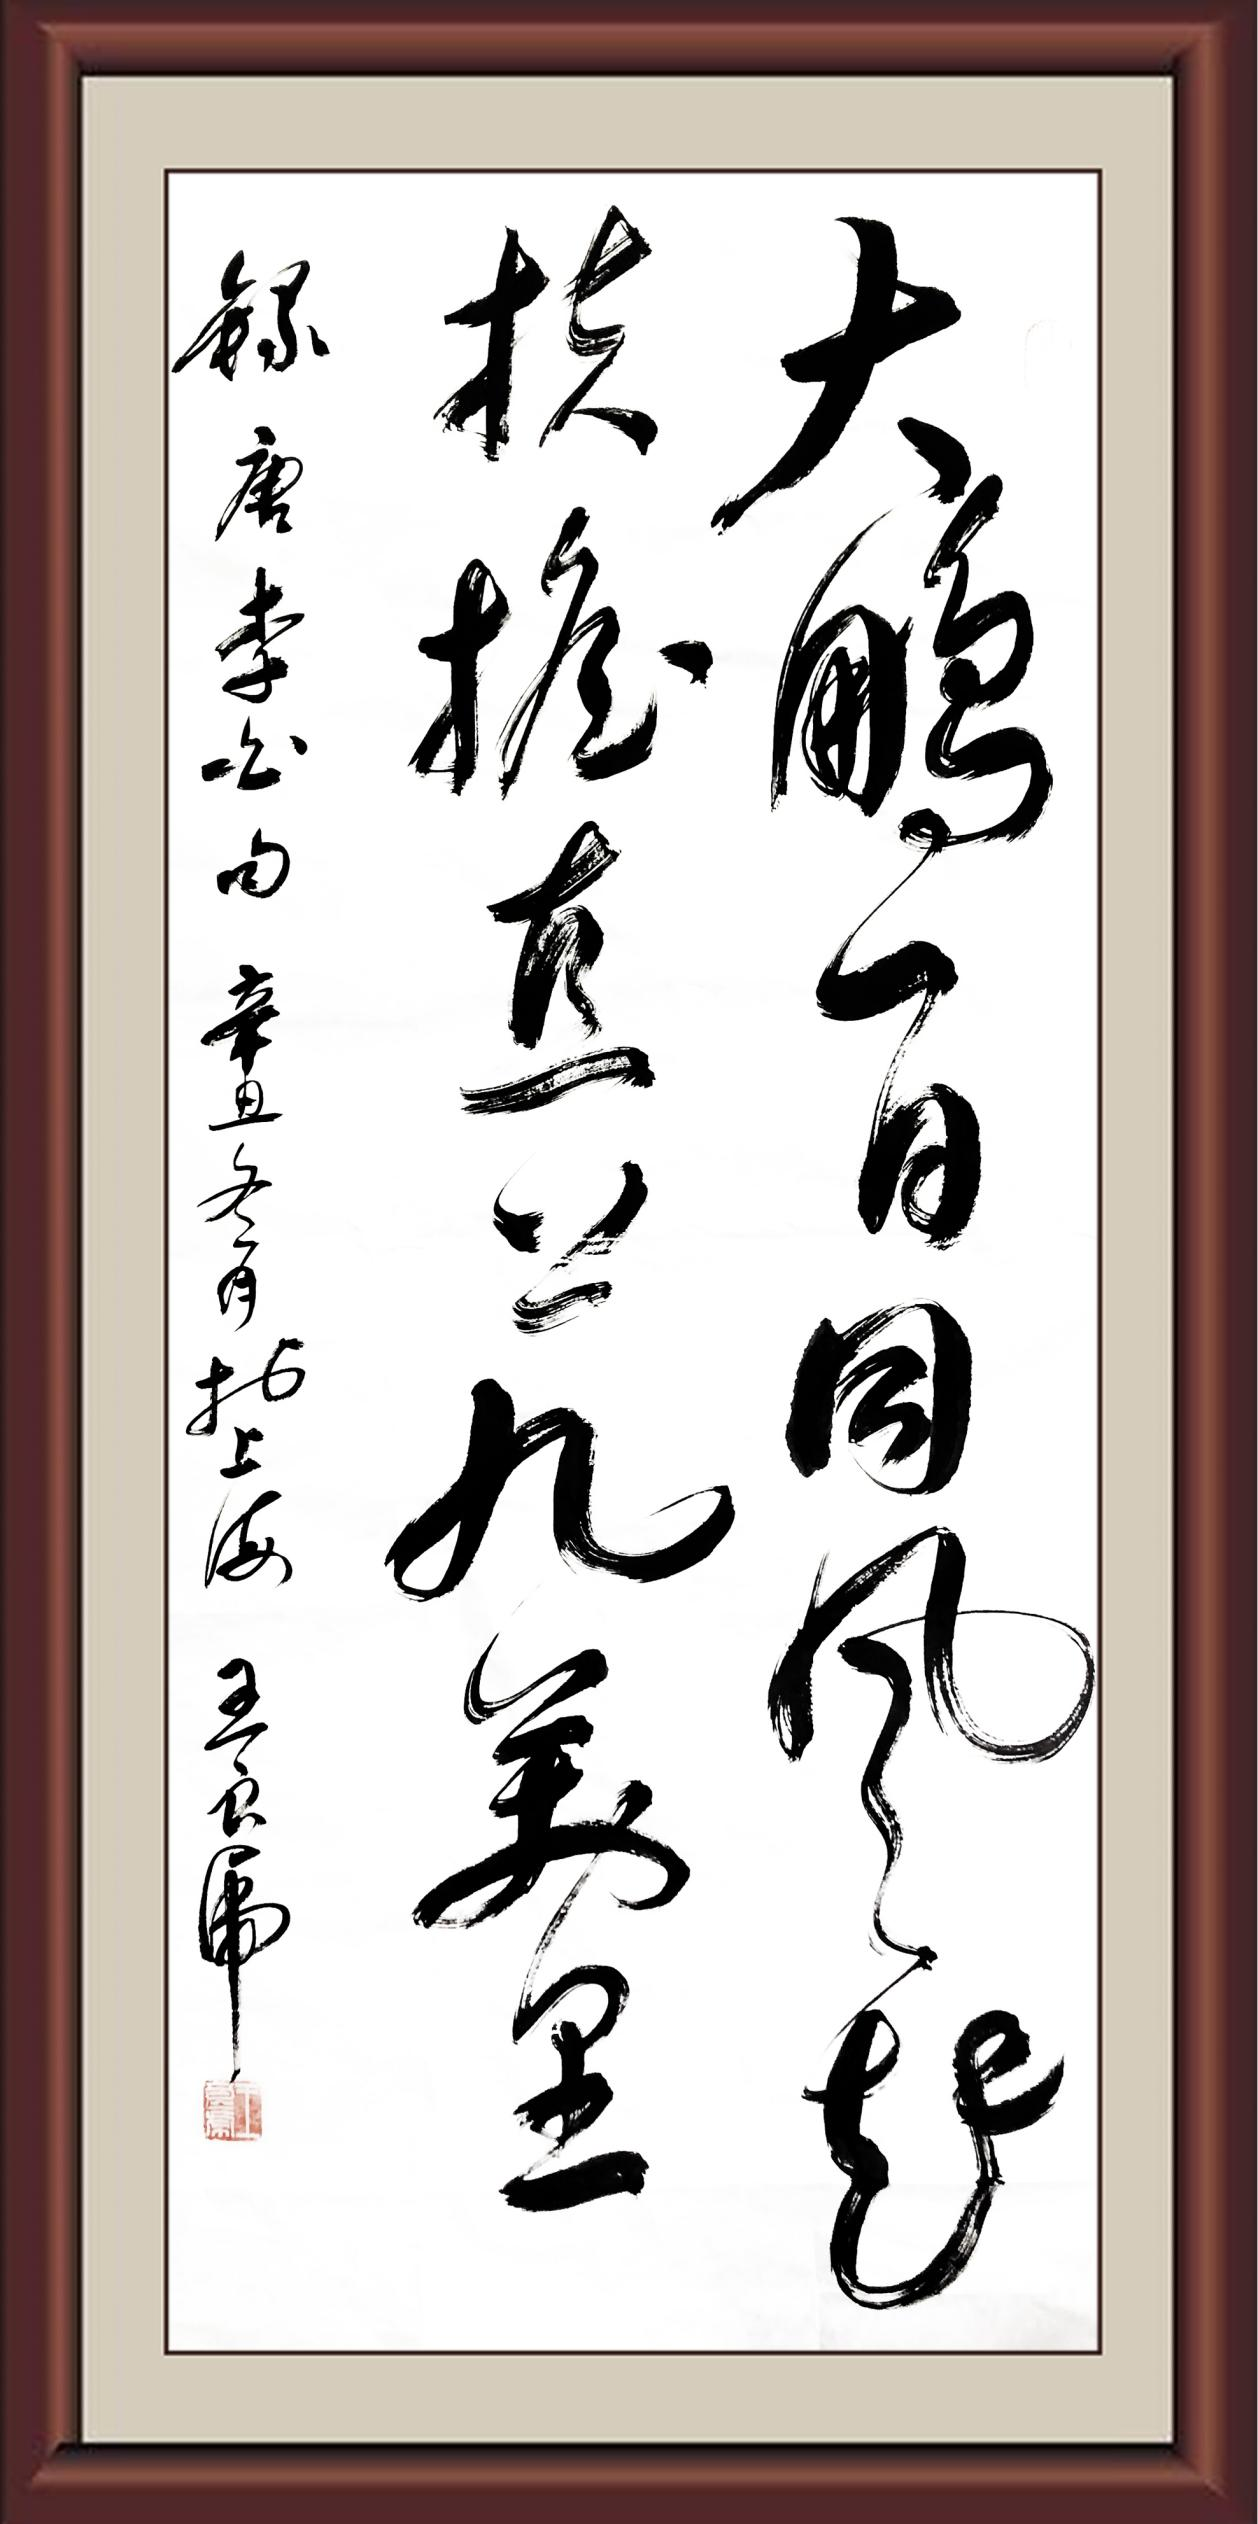 大鹏一日同风起
扶摇直上九万里
录唐李白句 辛丑冬月于上海 王京席